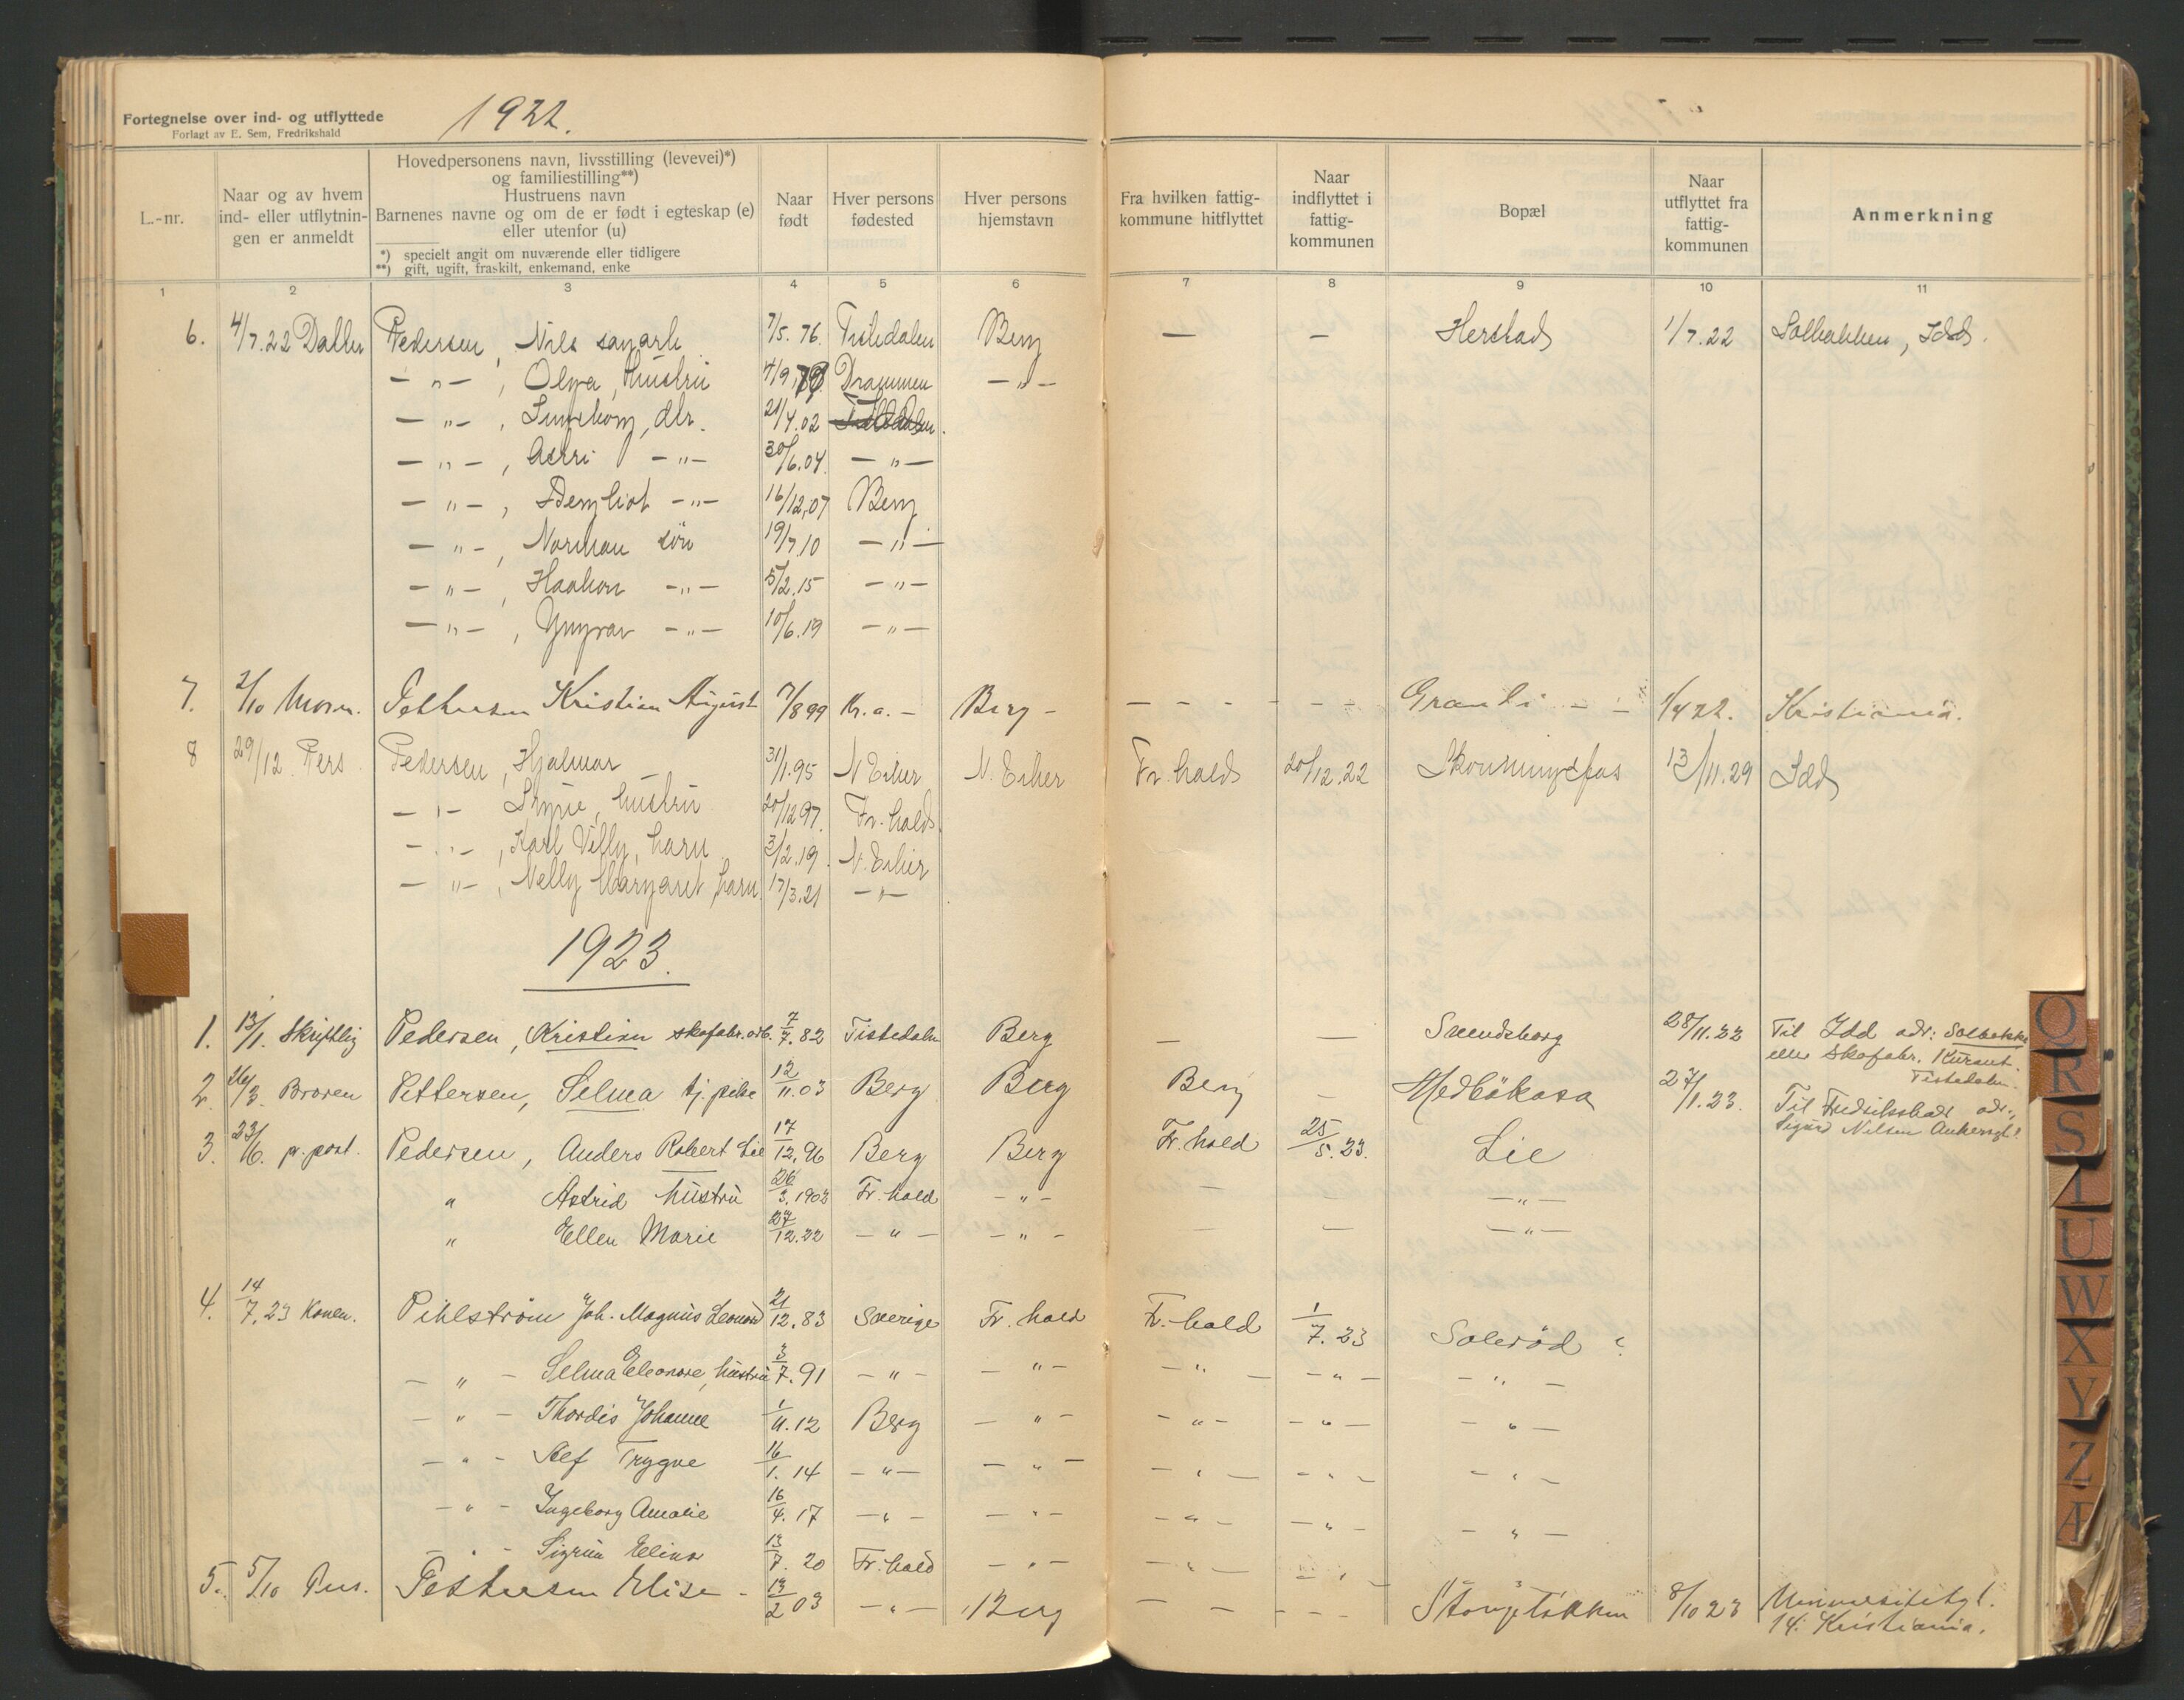 Fortegnelse over ind- og utflyttede
Forlagt av E. Sem, Fredrikshald
1922.
L.-nr.
Naar og av hvem ind- eller utflytnin- gen er anmeldt
Hovedpersonens navn, livsstilling (levevei)*)
og familiestilling**)
Hustruens navn
Barnenes navne og om de er født i egteskap (e)
eller utenfor (u)
*) specielt angit om nuværende eller tidligere
**) gift, ugift, fraskilt, enkemand, enke
Naar født
Hver persons fødested
Hver persons hjemstavn
Fra hvilken fattig- kommune hitflyttet
Naar indflyttet i fattig- kommunen
Bopæl
Naar utflyttet fra fattig- kommunen
Anmerkning
1 2 3 4 5 6 7 8 9 10 11
6. 4/7.22 Pedersen, Nils sagarb 7/5. 76. Tistedalen Berg — — Herstad 1/7.22 Solbakken, Idd.
— " — , Olga, hustru 4/9. Drammen — " —
— " — , dtr. 21/4.02
— " — , Astri — " — 30/6.04. — " —
— " — , — " — 16/12.07 Berg
— " — , Norman søn 19/7.10 — " —
— " — , Haakon — " — 5/2.15 — " —
— " — , Yngvar — " — 10/6.19 — " —
7. 2/10 Pettersen Kristian August 7/8 99 Kr.a. — Berg — — — — — — — Granli — — 1/4 22. Kristiania.
8 29/12 Pers Pedersen, Hjalmar 31/1.95 N. Eiker N. Eiker Fr.hald 20/12.22 13/11.29 Idd
— " — Signe, hustru 20/12 97. Fr.hald
— " — , Karl Villy, barn 3/2.19. N. Eiker
— " — , Nelly Margaret, barn 17/3.21 — " —
1923.
1. 13/1. Skriftlig Pedersen, Kristian skofabr.arb. 7/7.82 Tistedalen Berg — — Svendsborg 28/11.22 Til Idd adr: Solbakke
eller Skofabr. Kurant.
Tistedalen.
2. 26/3. Broren Pettersen, Selma tj.pike 12/11.03 Berg Berg Berg — Hedbökasa 27/1.23. Til Fredrikshald adr.,
Sigurd Nilsen Ankersgt.
3. 23/6. pr. post. Pedersen, Anders Robert Lie 17/12.96 Berg Berg Fr.hald 25/5.23. Lie
" Astrid hustru 26/3.1903 Fr.hald — " — — — — " —
" Ellen Marie 27/12.22 — " — — " — — — — " —
4. 14/7.23 Konen. Pihlström Joh. Magnus Leonard 21/12.83 Sverige Fr.hald Fr.hald 1/7.23 Solerød
— " — Selma Eleonore, hustru 3/7.91 — " — — " — — " — — " — — " —
— " — Thordis Johanne 1/11.12 Berg — " — — " — — " — — " —
— " — Alf Trygve 16/1.14 — " — — " — — " — — " — — " —
— " — Ingeborg Amalie 16/4.17 — " — — " — — " — — " — — " —
— " — Sigrun Elina 13/7.20 Fr.hald — " — — " — — " —
5. 5/10 Pers. Pettersen Elise — 13/2 03 — " — Berg — — — — — — Stangeløkken 8/10 23 Universitetgt.
14. Kristiania.
Q
R
S
T
U
W
X
Y
Z
Æ